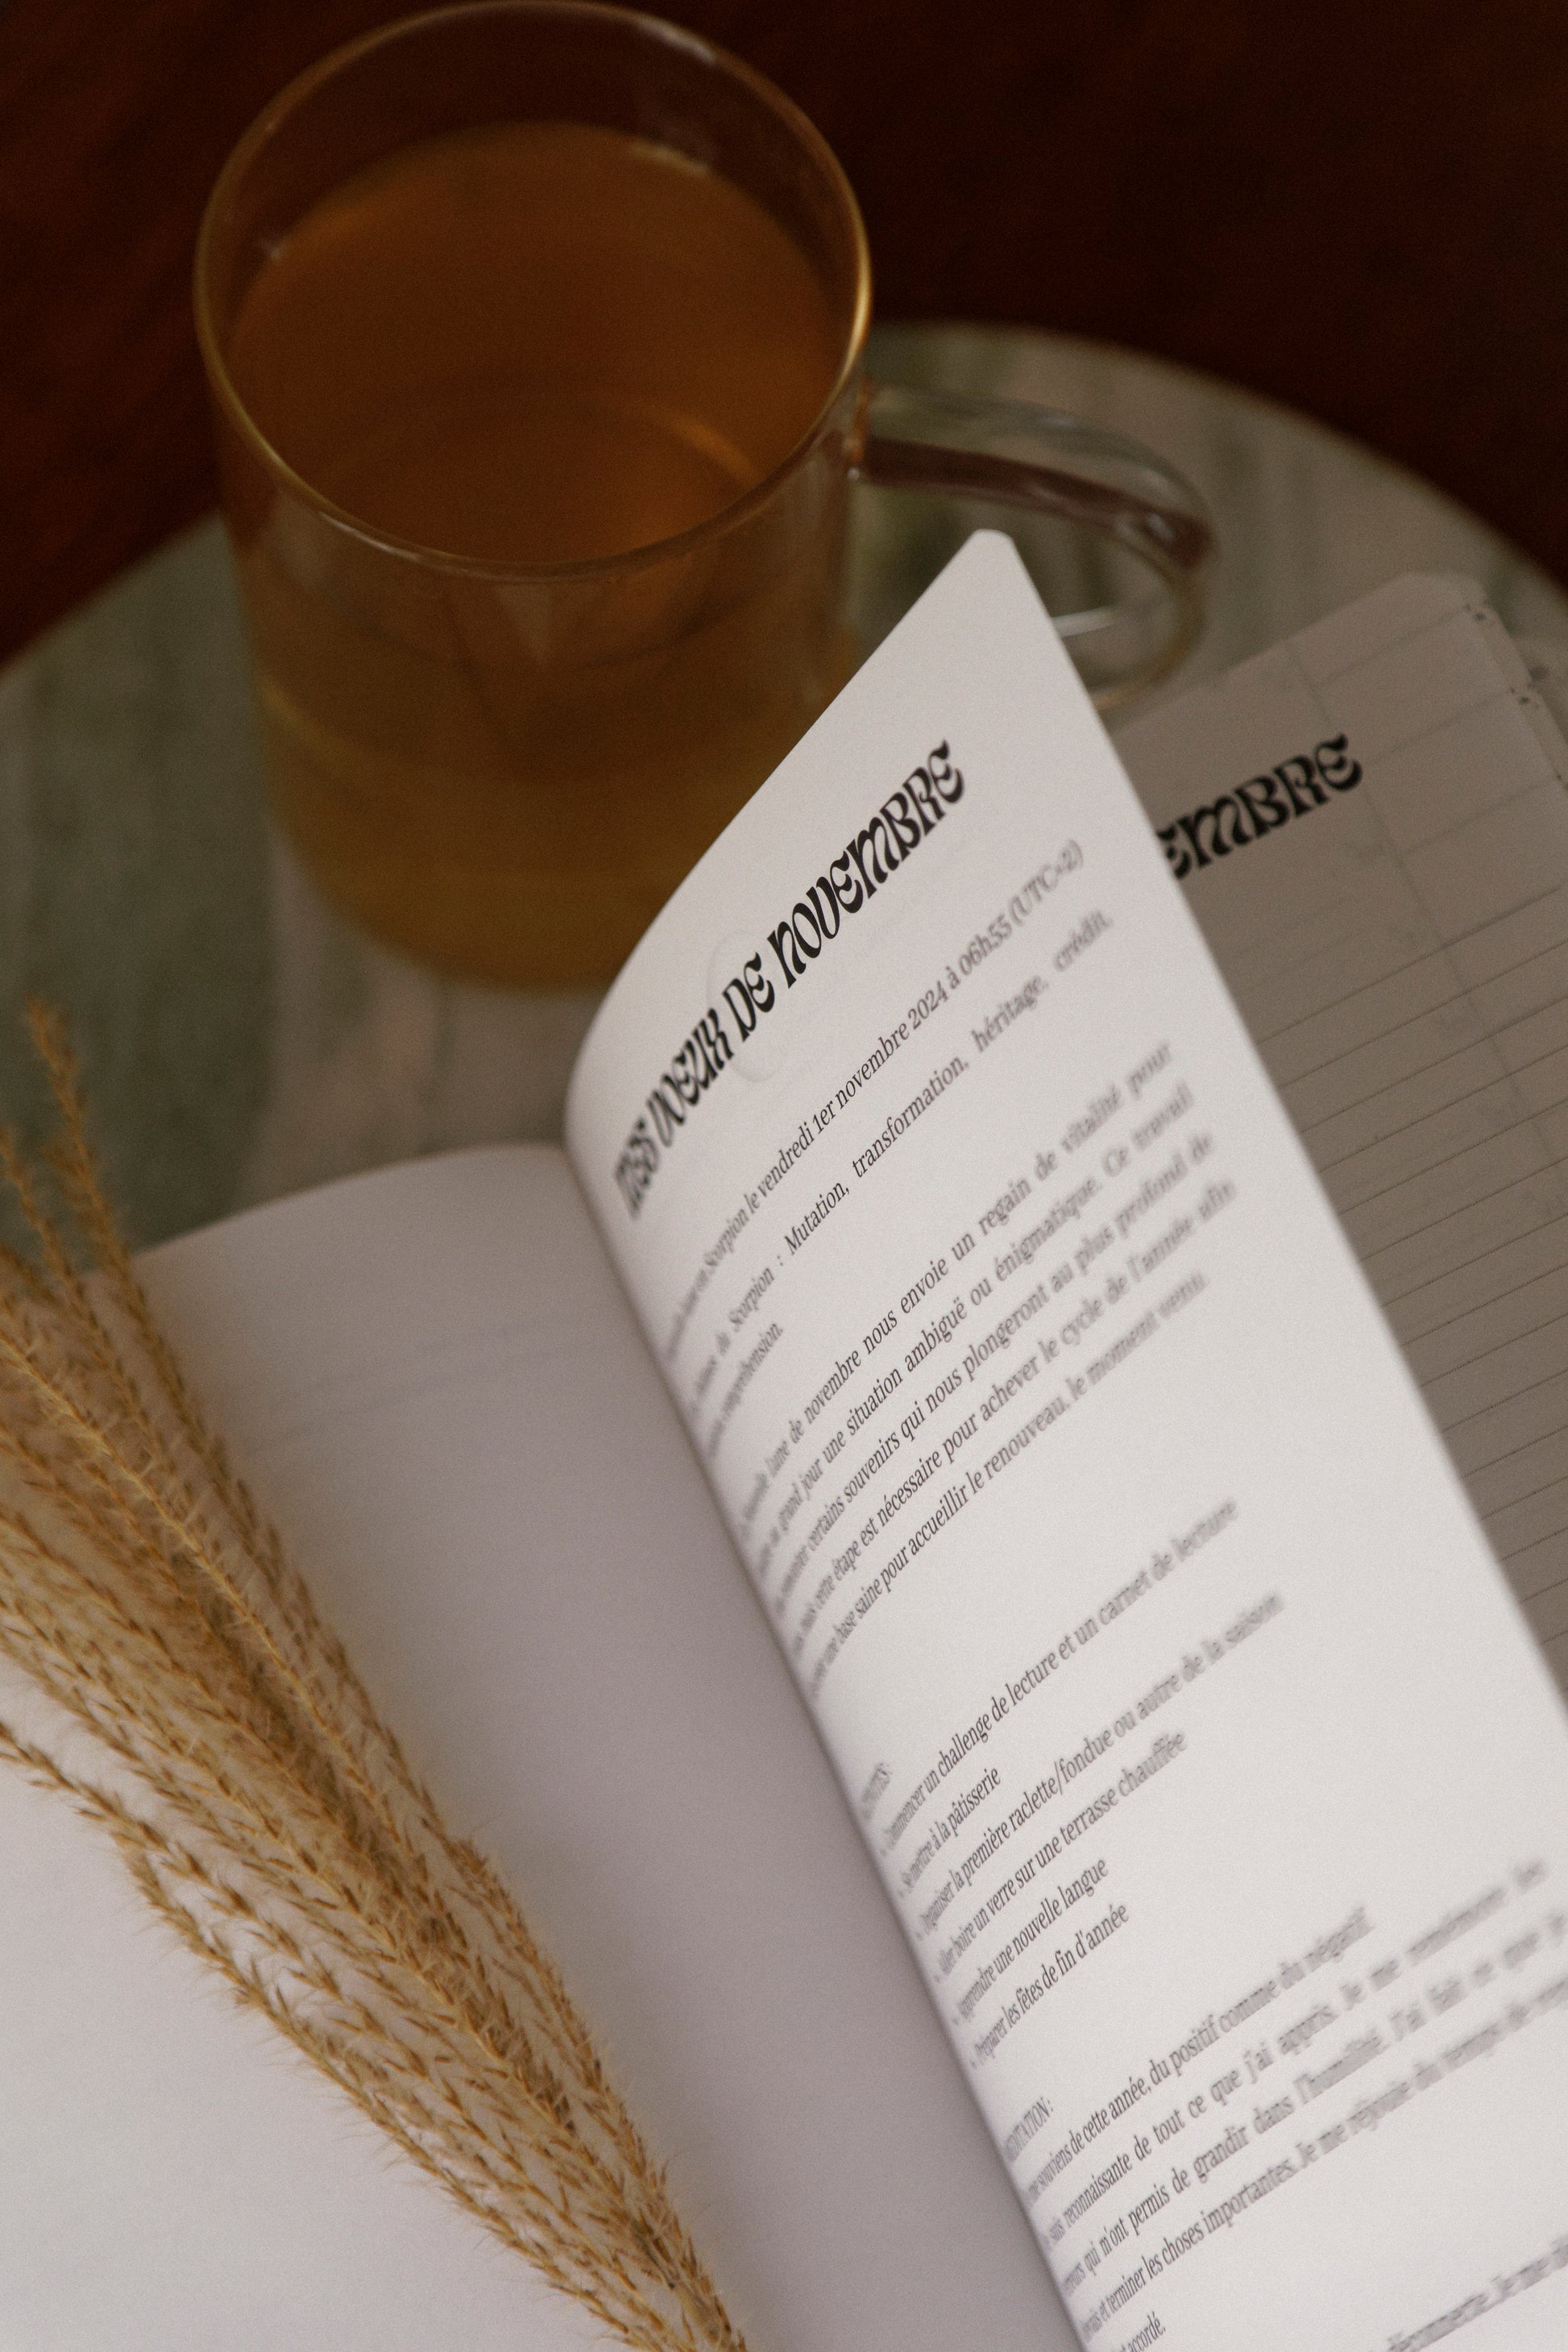 MES VOEUX DE NOVEMBRE
EMBRE
lune en Scorpion le vendredi 1er novembre 2024 à 06h55 (UTC+2)
de Scorpion : Mutation, transformation, héritage, crédit,
compréhension.
lune de novembre nous envoie un regain de vitalité pour
au grand jour une situation ambiguë ou énigmatique. Ce travail
certains souvenirs qui nous plongeront au plus profond de
mais cette étape est nécessaire pour achever le cycle de l'année afin
une base saine pour accueillir le renouveau, le moment venu.
Commencer un challenge de lecture et un carnet de lecture
Se mettre à la pâtisserie
Organiser la première raclette/fondue ou autre de la saison
Aller boire un verre sur une terrasse chauffée
Apprendre une nouvelle langue
Préparer les fêtes de fin d'année
MÉDITATION :
me souviens de cette année, du positif comme du négatif.
suis reconnaissante de tout ce que j'ai appris. Je me remémore les
qui m'ont permis de grandir dans l'humilité. J'ai fait ce que je
et terminer les choses importantes. Je me réjouie du temps de
accordé.
Je me